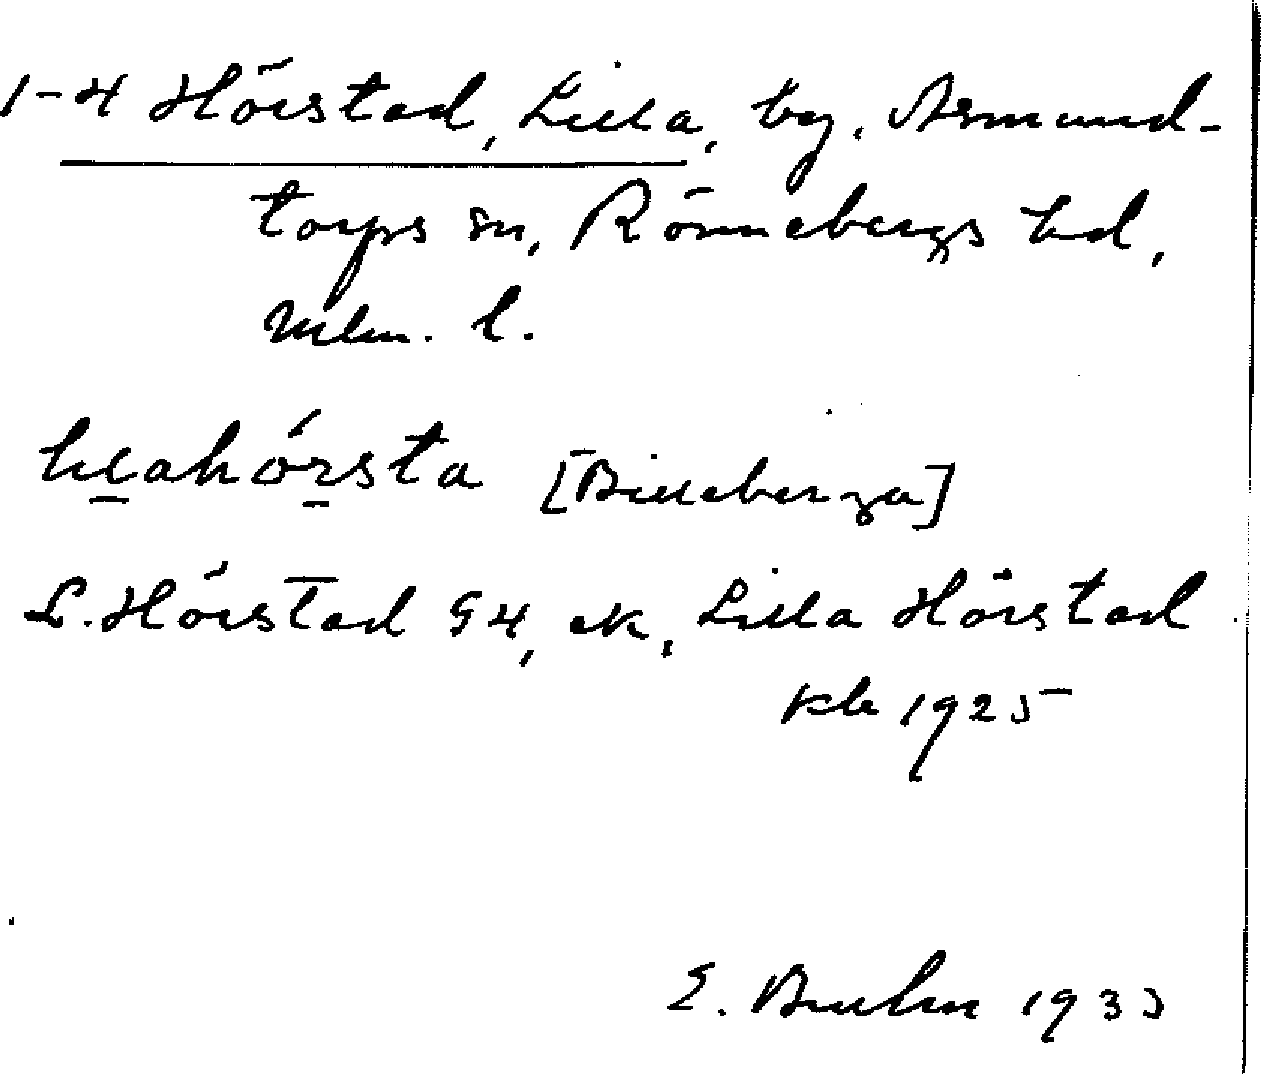 1-4 Hörstad, Lilla, by. Asmund-
torps sn, Rönnebergs hd,
Mlm. l.
[Billeberga]
L. Hörstad G4, ek, Lilla Hörstad
kb 1925
E. Bruhn 1933